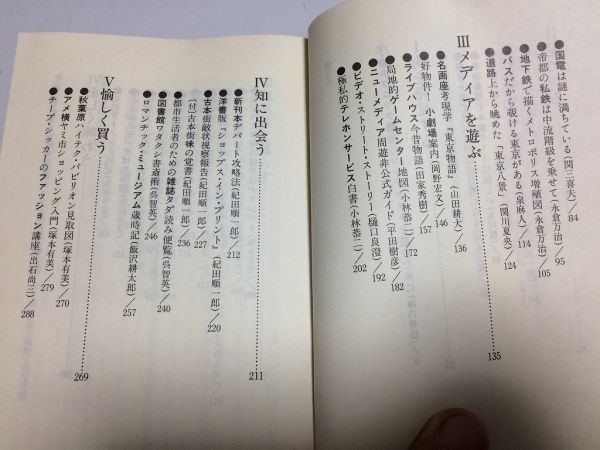 ●国電は謎に満ちている(関三喜夫)/84
●帝都の私鉄は中流階級を乗せて(永倉万治)/95
●地下鉄で描くメトロポリス増殖図(永倉万治)/105
●バスだから覗ける東京がある(泉麻人)/114
●道路上から眺めた「東京八景」(関川夏央)/124
Ⅲ メディアを遊ぶ 135
●名画座考現学『東京物語』(山田耕大)/136
●好物件!小劇場案内(岡野宏文)/146
●ライブハウス今昔物語(田家秀樹)/157
●局地的ゲームセンター地図(小林恭二)/172
●ニューメディア周遊非公式ガイド(平田樹彦)/182
●ビデオ・ストリート・ストーリー(樋口良澄)/192
●極私的テレホンサービス白書(小林恭二)/202
Ⅳ 知に出会う 211
●新刊本デパート攻略法(紀田順一郎)/212
●洋書版『ショップス・イン・プリント』(紀田順一郎)/220
●古本街敵状視察報告(紀田順一郎)/227
〔付〕古本街味の覚書(紀田順一郎)/236
●都市生活者のための雑誌タダ読み便覧(呉智英)/240
●図書館ワタクシ書斎術(呉智英)/246
●ロマンチック・ミュージアム歳時記(飯沢耕太郎)/257
Ⅴ 愉しく買う 269
●秋葉原ハイテク・パビリオン見取図(塚本有美)/270
●アメ横ヤミ市ショッピング入門(塚本有美)/279
●チープ・シッカーのファッション講座(出石尚三)/288